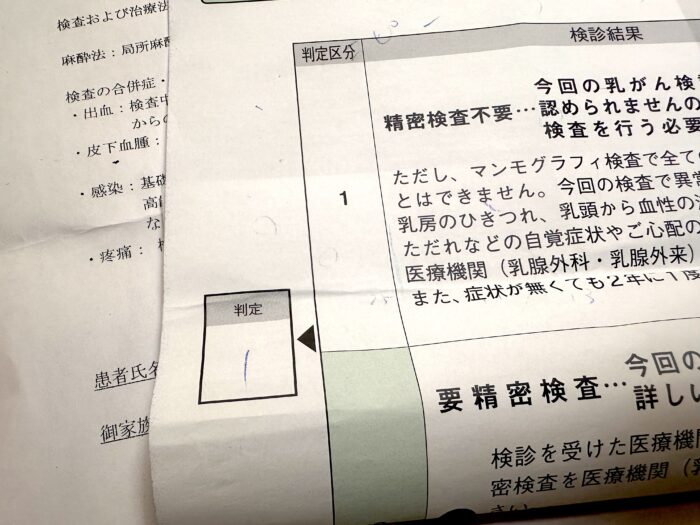 検査および治療法
麻酔法：局所麻酔
検査の合併症・
・出血：検査中
から
・皮下血腫：
・感染：基礎
高
な
・疼痛：
患者氏名
御家族
判定区分
検診結果
精密検査不要…
今回の乳がん検
認められませんの
検査を行う必要
1
ただし、マンモグラフィ検査で全ての
とはできません。今回の検査で異常
乳房のひきつれ、乳頭から血性の
ただれなどの自覚症状やご心配の
医療機関（乳腺外科・乳腺外来）
また、症状が無くても2年に1度
判定
1
要精密検査…
今回の
詳しい
検診を受けた医療機関
密検査を医療機関（乳
さい